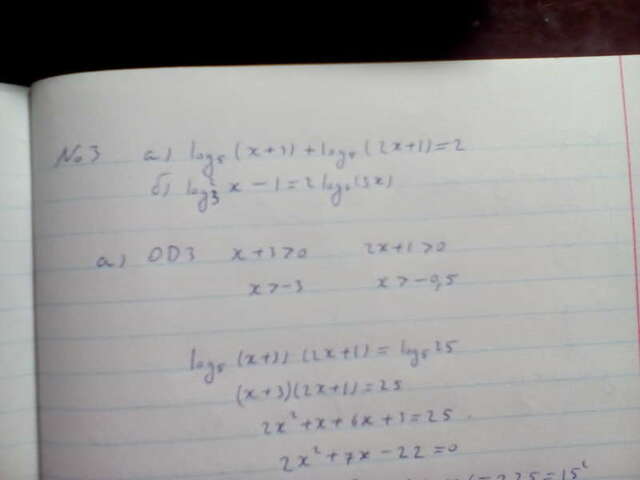 №3 a) log₅(x+3)+log₅(2x+1)=2
б) log₃² x − 1 = 2 log₃(3x)
a) ОДЗ x+3>0 2x+1>0
x>-3 x>-0,5
log₅(x+3)(2x+1)=log₅25
(x+3)(2x+1)=25
2x²+x+6x+3=25
2x²+7x-22=0
=225=15²